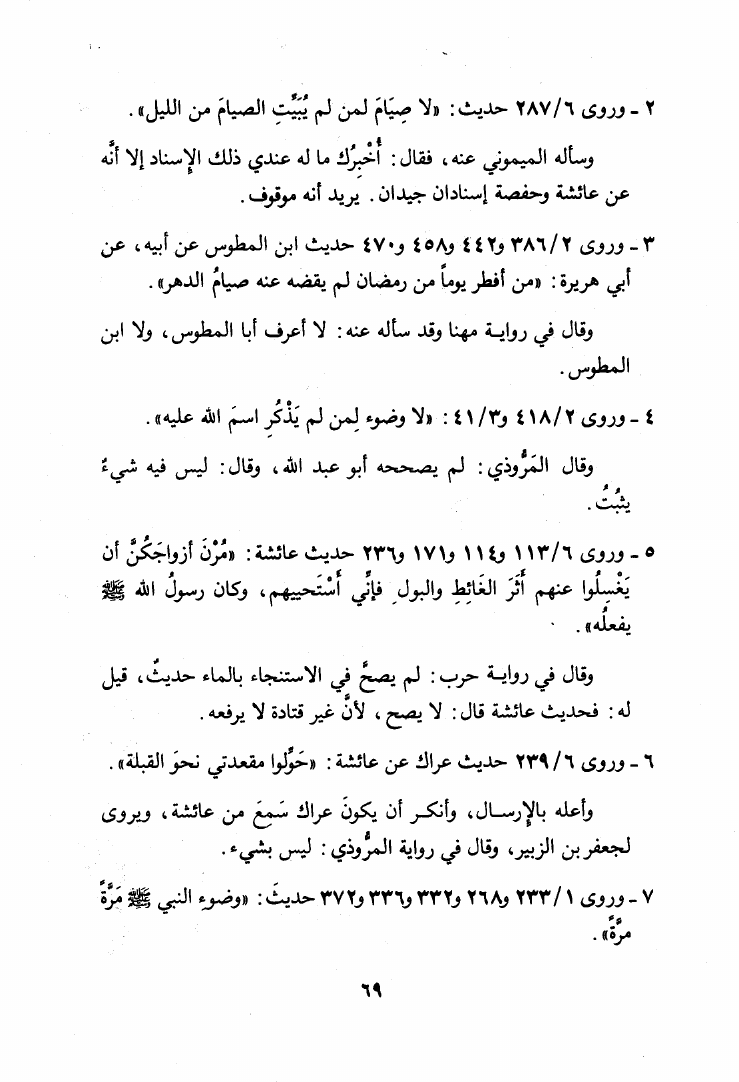 ٢ - وروى ٢٨٧/٦ حديث: «لا صِيَامَ لمن لم يُبَيِّتِ الصيامَ من الليل».
وسأله الميموني عنه، فقال: أُخْبِرُك ما له عندي ذلك الإسناد إلا أنَّه
عن عائشة وحفصة إسنادان جيدان. يريد أنه موقوف.
٣ - وروى ٣٨٦/٢ و٤٤٢ و٤٥٨ و٤٧٠ حديث ابن المطوس عن أبيه، عن
أبي هريرة: «من أفطر يوماً من رمضان لم يقضه عنه صيامُ الدهر».
وقال في رواية مهنا وقد سأله عنه: لا أعرف أبا المطوس، ولا ابن
المطوس.
٤ - وروى ٤١٨/٢ و٤١/٣: «لا وضوء لِمن لم يَذْكُرِ اسمَ الله عليه».
وقال المَرُّوذي: لم يصححه أبو عبد الله، وقال: ليس فيه شيءٌ
يثبُتُ.
٥ - وروى ١١٣/٦ و١١٤ و١٧١ و٢٣٦ حديث عائشة: «مُرْنَ أزواجَكُنَّ أن
يَغْسِلُوا عنهم أَثَرَ الغَائِطِ والبولِ فإنِّي أَسْتَحييهم، وكان رسولُ الله ﷺ
يفعلُه».
وقال في رواية حرب: لم يصحَّ في الاستنجاء بالماء حديثٌ، قيل
له: فحديث عائشة قال: لا يصح، لأنَّ غير قتادة لا يرفعه.
٦ - وروى ٢٣٩/٦ حديث عراك عن عائشة: «حَوِّلوا مقعدتي نحوَ القبلة».
وأعله بالإرسال، وأنكر أن يكونَ عراك سَمِعَ من عائشة، ويروى
لجعفر بن الزبير، وقال في رواية المرُّوذي: ليس بشيء.
٧ - وروى ٢٣٣/١ و٢٦٨ و٣٣٢ و٣٣٦ و٣٧٢ حديثَ: «وضوءِ النبي ﷺ مَرَّةً
مرَّةً».
٦٩